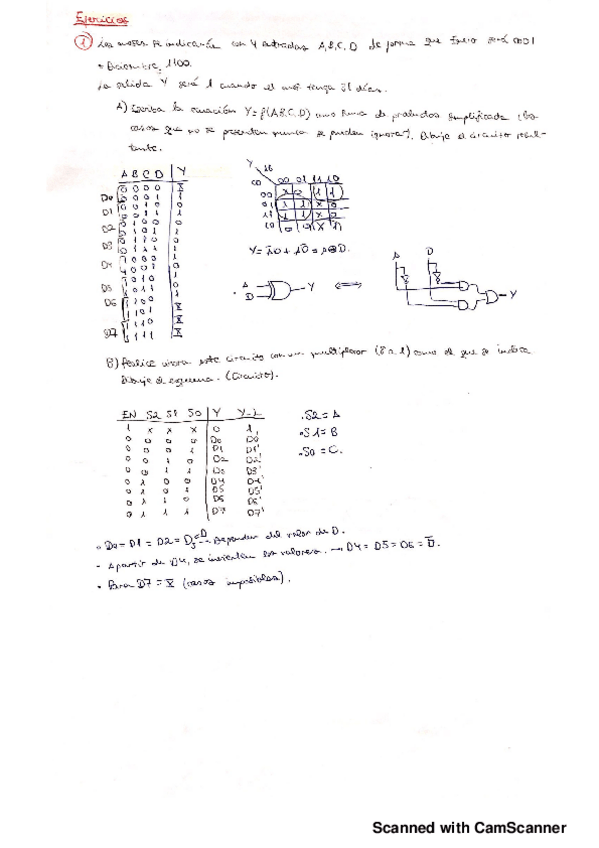 Ejercicios
1 Los meses se indicarán con 4 entradas A,B,C,D de forma que Enero será 0001
Diciembre, 1100.
La salida Y será 1 cuando el mes tenga 31 días.
A) Escriba la ecuación Y=f(A,B,C,D) como suma de productos simplificada (los
casos que no se presentan nunca se pueden ignorar). Dibuje el circuito resul-
tante.
A B C D Y
D0 0000 X
0001 1
D1 0010 0
0011 1
D2 0100 0
0101 1
D3 0110 0
0111 1
D4 1000 1
1001 0
D5 1010 1
1011 0
D6 1100 1
1101 X
D7 1110 X
1111 X
Y
CD 00 01 11 10
00 X 0 1 1
01 1 1 X 0
11 1 1 X 0
10 0 0 X 1
Y = A̅D + AD̅ = A⊕D.
A
D
Y
⟺
A D
Y
B) Realice ahora este circuito con un multiplexor (8 a 1) como el que se indica
Dibuje el esquema. (Circuito).
EN S2 S1 S0 Y
1 X X X 0 1
0 0 0 0 D0 D0'
0 0 0 1 D1 D1'
0 0 1 0 D2 D2'
0 0 1 1
0 1 0 0 D4 D4'
0 1 0 1 D5 D5'
0 1 1 0 D6 D6'
0 1 1 1 D7 D7'
.S2 = A
.S1 = B
.S0 = C.
D0 = D1 = D2 = D3 = D Dependen del valor de D.
- A partir de D4, se invierten los valores. → D4 = D5 = D6 = D̅.
Para D7 = X (casos imposibles).
Scanned with CamScanner